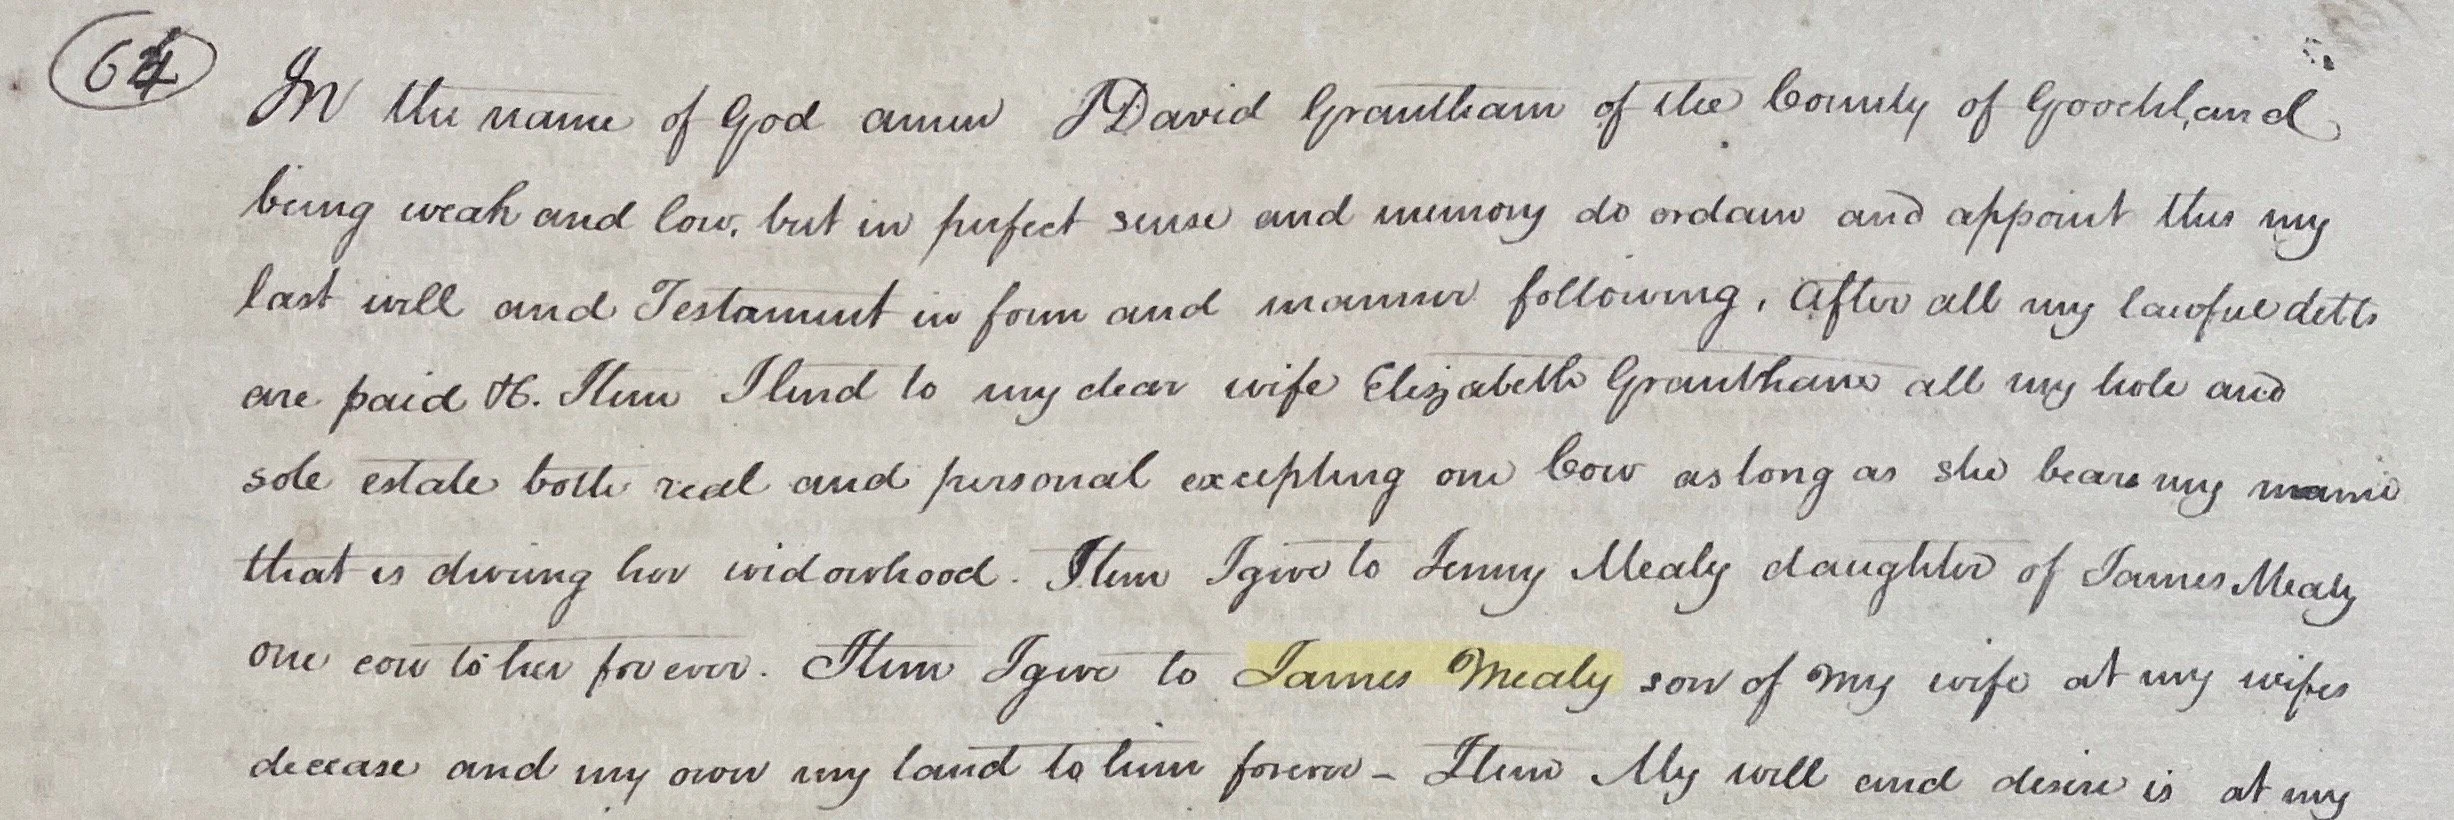 64
In the name of God amen I David Grantham of the County of Goochland
being weak and low, but in perfect sense and memory do ordain and appoint this my
last will and Testament in form and manner following, After all my lawful detts
are paid &c. Item I lend to my dear wife Elizabeth Grantham all my hole and
sole estate both real and personal excepting one Cow as long as she bears my name
that is during her widowhood. Item I give to Jenny Mealy daughter of James Mealy
one cow to her for ever. Item I give to James Mealy son of my wife at my wifes
decease and my own my land to him forever - Item My will and desire is at my